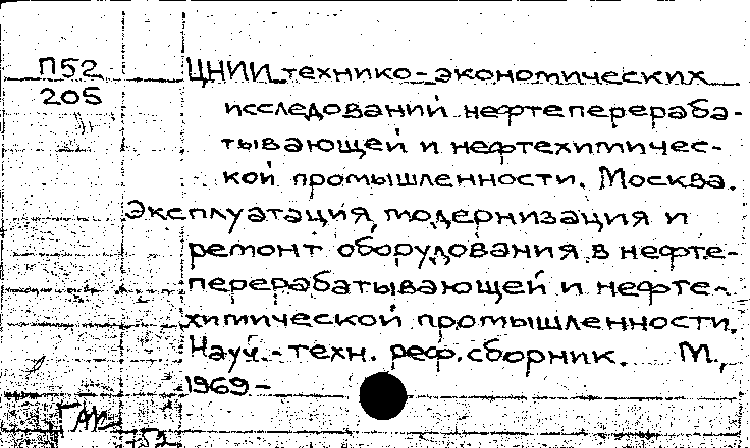 П52
205
ЦНИИ технико-экономических
исследований нефтеперераба-
тывающей и нефтехимичес-
кой промышленности. Москва.
Эксплуатация, модернизация и
ремонт оборудования в нефте-
перерабатывающей и нефте-
химической промышленности.
Науч.-техн. реф. сборник. М.,
1969-